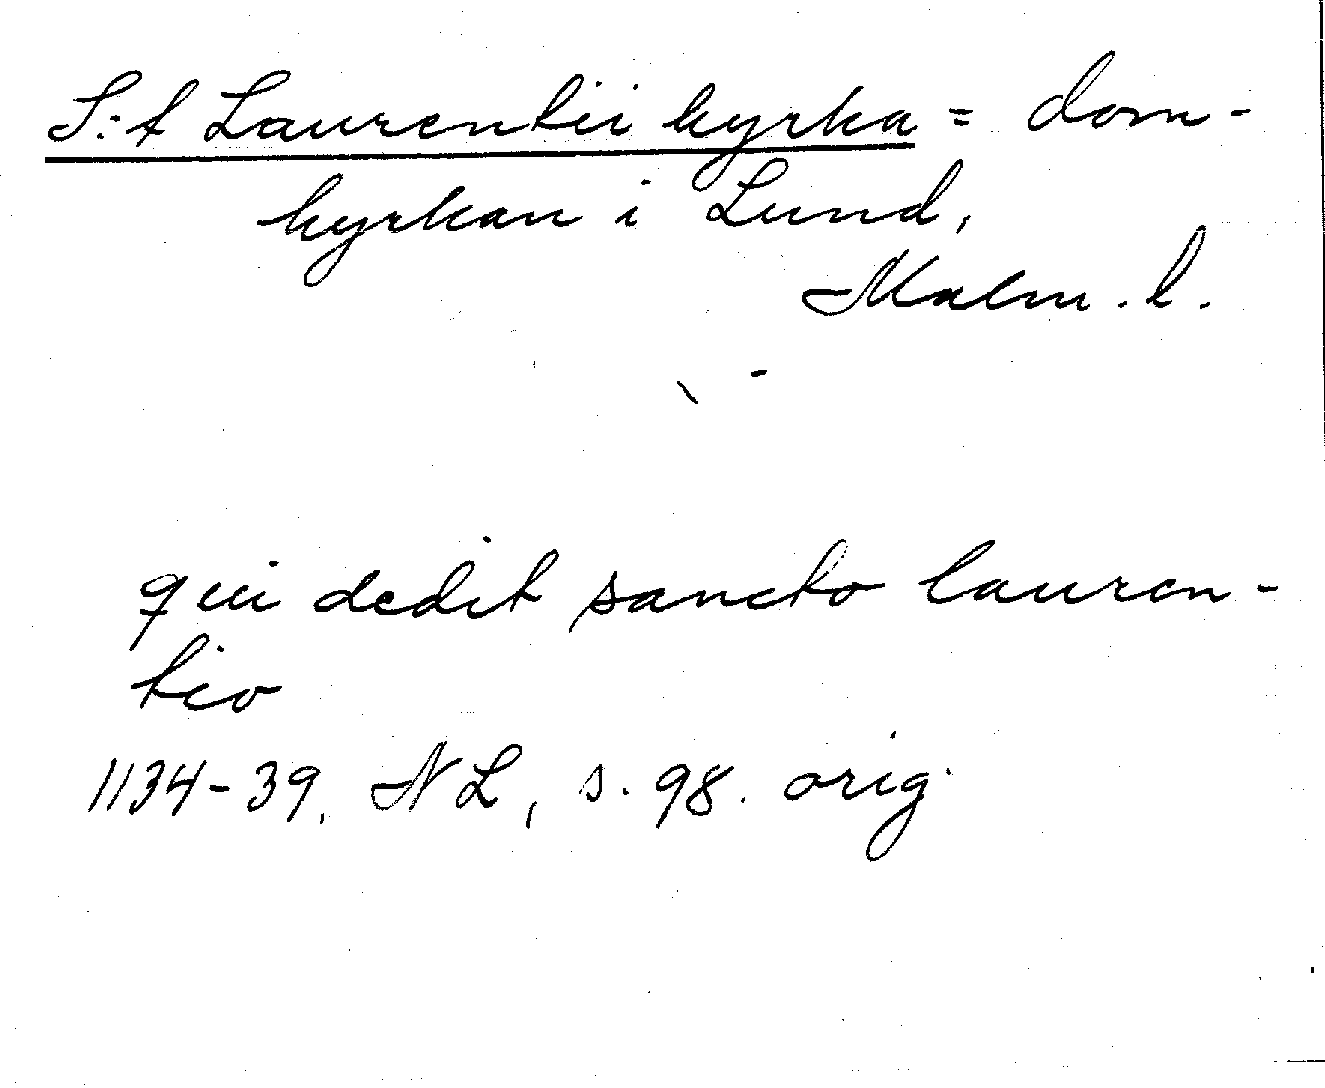 S:t Laurentii kyrka = dom-
kyrkan i Lund,
Malm. l.
qui dedit sancto lauren-
tio
1134-39, NL, s. 98. orig.